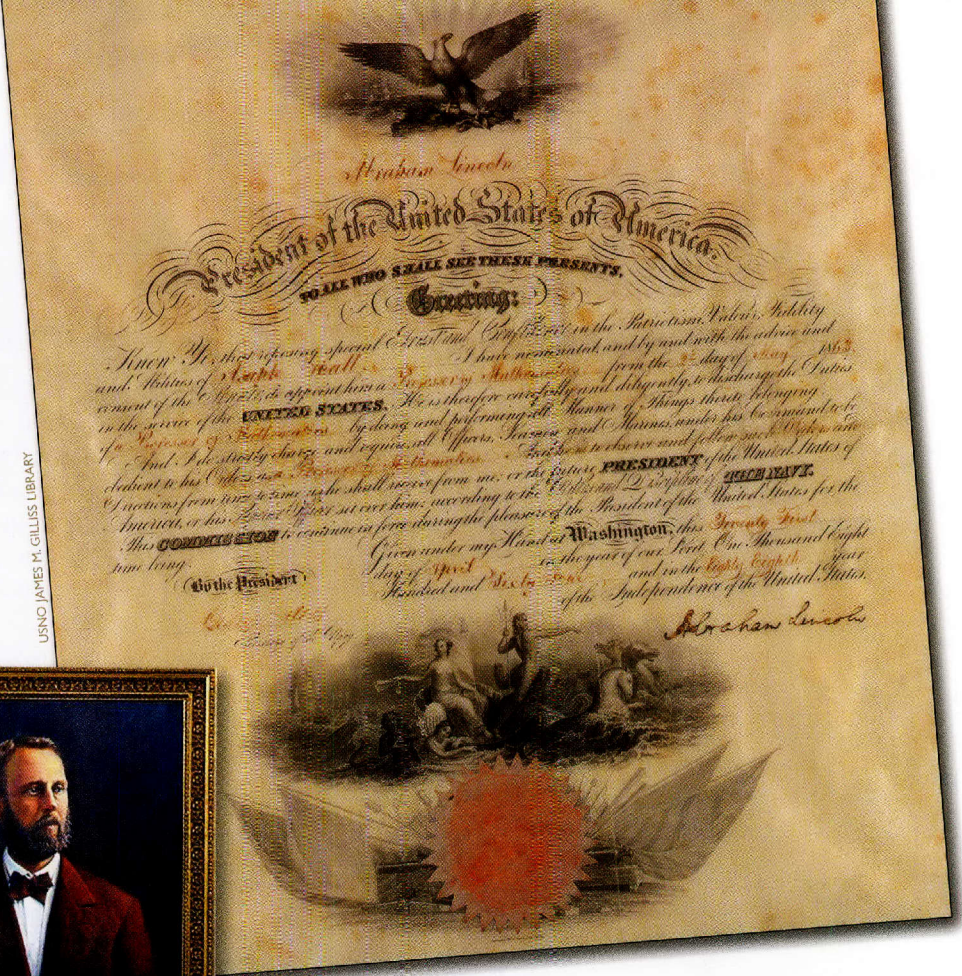 Abraham Lincoln
President of the United States of America.
TO ALL WHO SHALL SEE THESE PRESENTS,
Greeting:
Know Ye, that reposing special Trust and Confidence in the Patriotism, Valour, Fidelity
and Abilities of Asaph Hall I have nominated, and by and with the advice and
consent of the Senate, do appoint him a Professor of Mathematics from the 2d day of May 1863
in the service of the UNITED STATES. He is therefore carefully and diligently to discharge the Duties
of a Professor of Mathematics by doing and performing all Manner of Things thereto belonging
And I do strictly charge and require all Officers, Seamen and Marines under his Command to be
obedient to his Orders as a Professor of Mathematics And he is to observe and follow such Orders and
Directions from time to time as he shall receive from me, or the future PRESIDENT of the United States of
America, or his Superior Officer set over him, according to the Rules and Discipline of THE NAVY.
This COMMISSION to continue in force during the pleasure of the President of the United States for the
time being.
Given under my Hand at Washington, this Twenty First
day of April in the year of our Lord One Thousand Eight
Hundred and Sixty and in the Eighty Eighth year
of the Independence of the United States.
By the President
Secretary of the Navy
Abraham Lincoln
USNO JAMES M. GILLISS LIBRARY